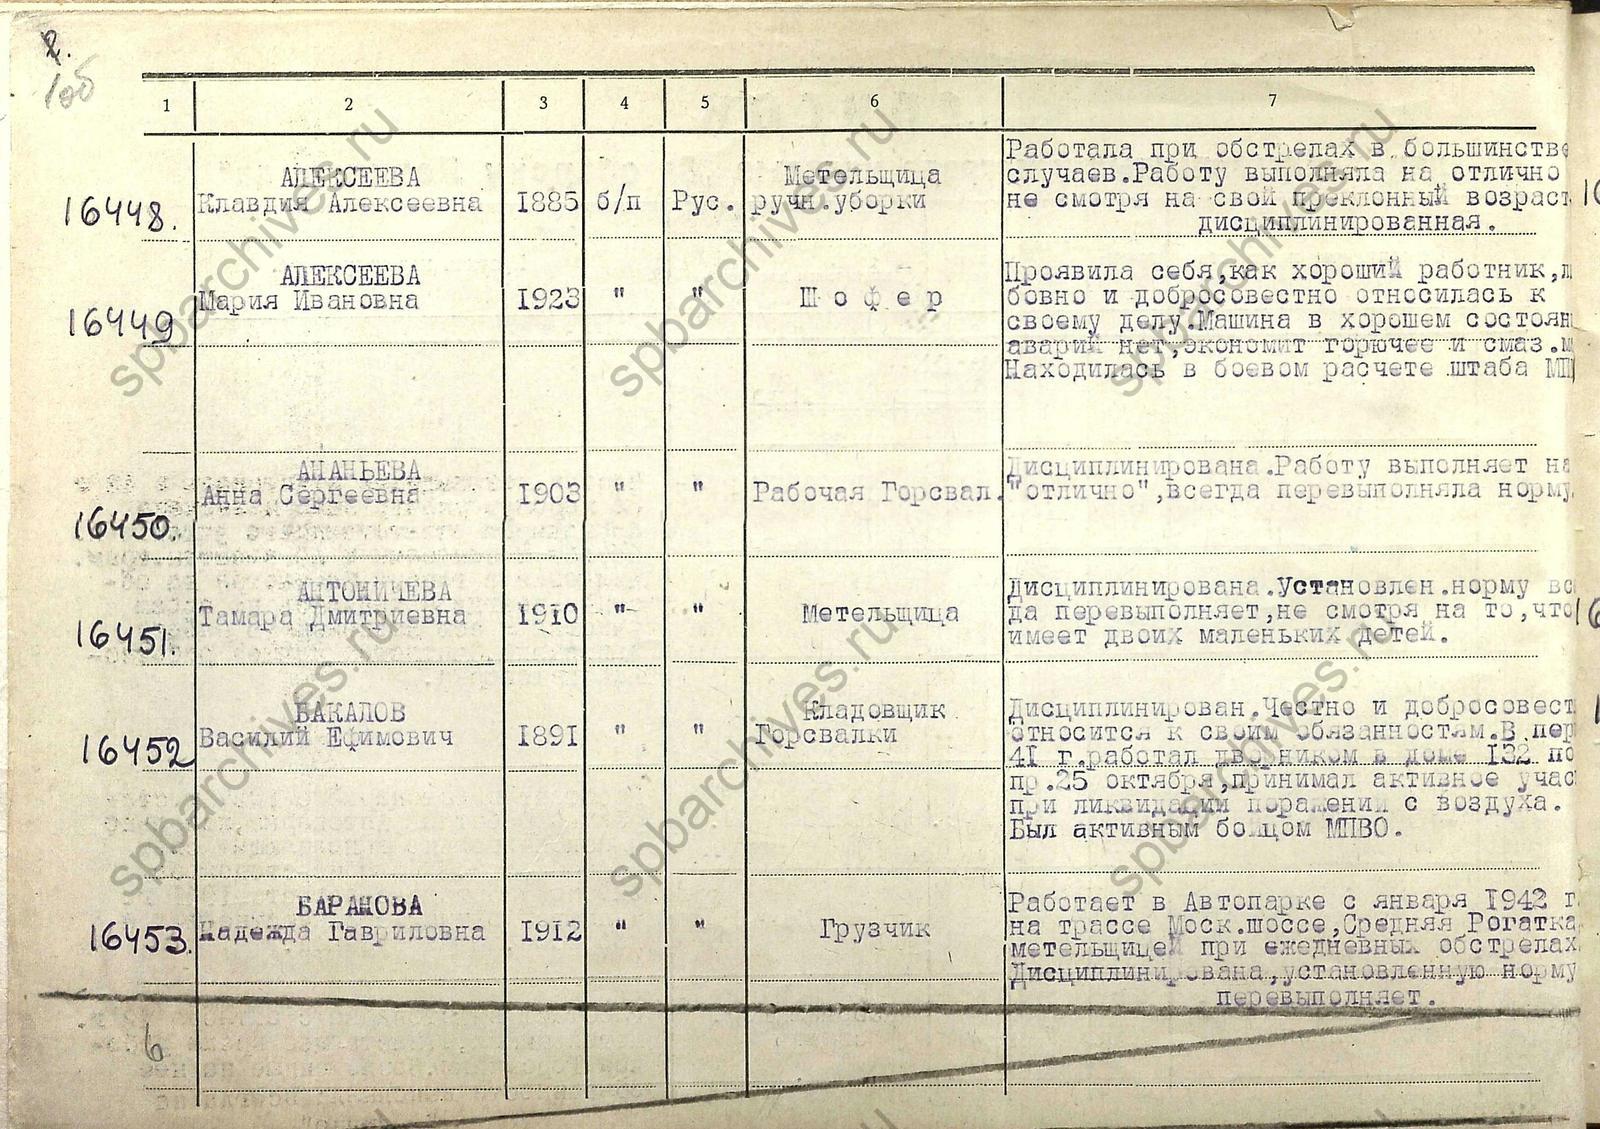 1об
1 2 3 4 5 6 7
16448.
АЛЕКСЕЕВА
Клавдия Алексеевна
1885
б/п
Рус.
Метельщица
ручн.уборки
Работала при обстрелах в большинстве
случаев.Работу выполняла на отлично
не смотря на свой преклонный возраст
дисциплинированная.
16449
АЛЕКСЕЕВА
Мария Ивановна
1923
"
"
Ш о ф е р
Проявила себя,как хороший работник,
бовно и добросовестно относилась к
своему делу.Машина в хорошем состоян
аварий нет,экономит горючее и смаз.м
Находилась в боевом расчете штаба МП
16450.
АНАНЬЕВА
Анна Сергеевна
1903
"
"
Рабочая Горсвал.
Дисциплинирована.Работу выполняет на
"отлично",всегда перевыполняла норму
16451.
АНТОМИЧЕВА
Тамара Дмитриевна
1910
"
"
Метельщица
Дисциплинирована.Установлен.норму вс
да перевыполняет,не смотря на то,что
имеет двоих маленьких детей.
16452
БАКАЛОВ
Василий Ефимович
1891
"
"
Кладовщик
Горсвалки
Дисциплинирован.Честно и добросовест
относится к своим обязанностям.В пер
41 г.работал дворником в доме 132 по
пр.25 октября,принимал активное учас
при ликвидации поражений с воздуха.
Был активным бойцом МПВО.
16453.
БАРАНОВА
Надежда Гавриловна
1912
"
"
Грузчик
Работает в Автопарке с января 1942 г.
на трассе Моск.шоссе,Средняя Рогатка,
метельщицей при ежедневных обстрелах
Дисциплинирована,установленную норму
перевыполняет.
6
spbarchives.ru
spbarchives.ru
spbarchives.ru
spbarchives.ru
spbarchives.ru
spbarchives.ru